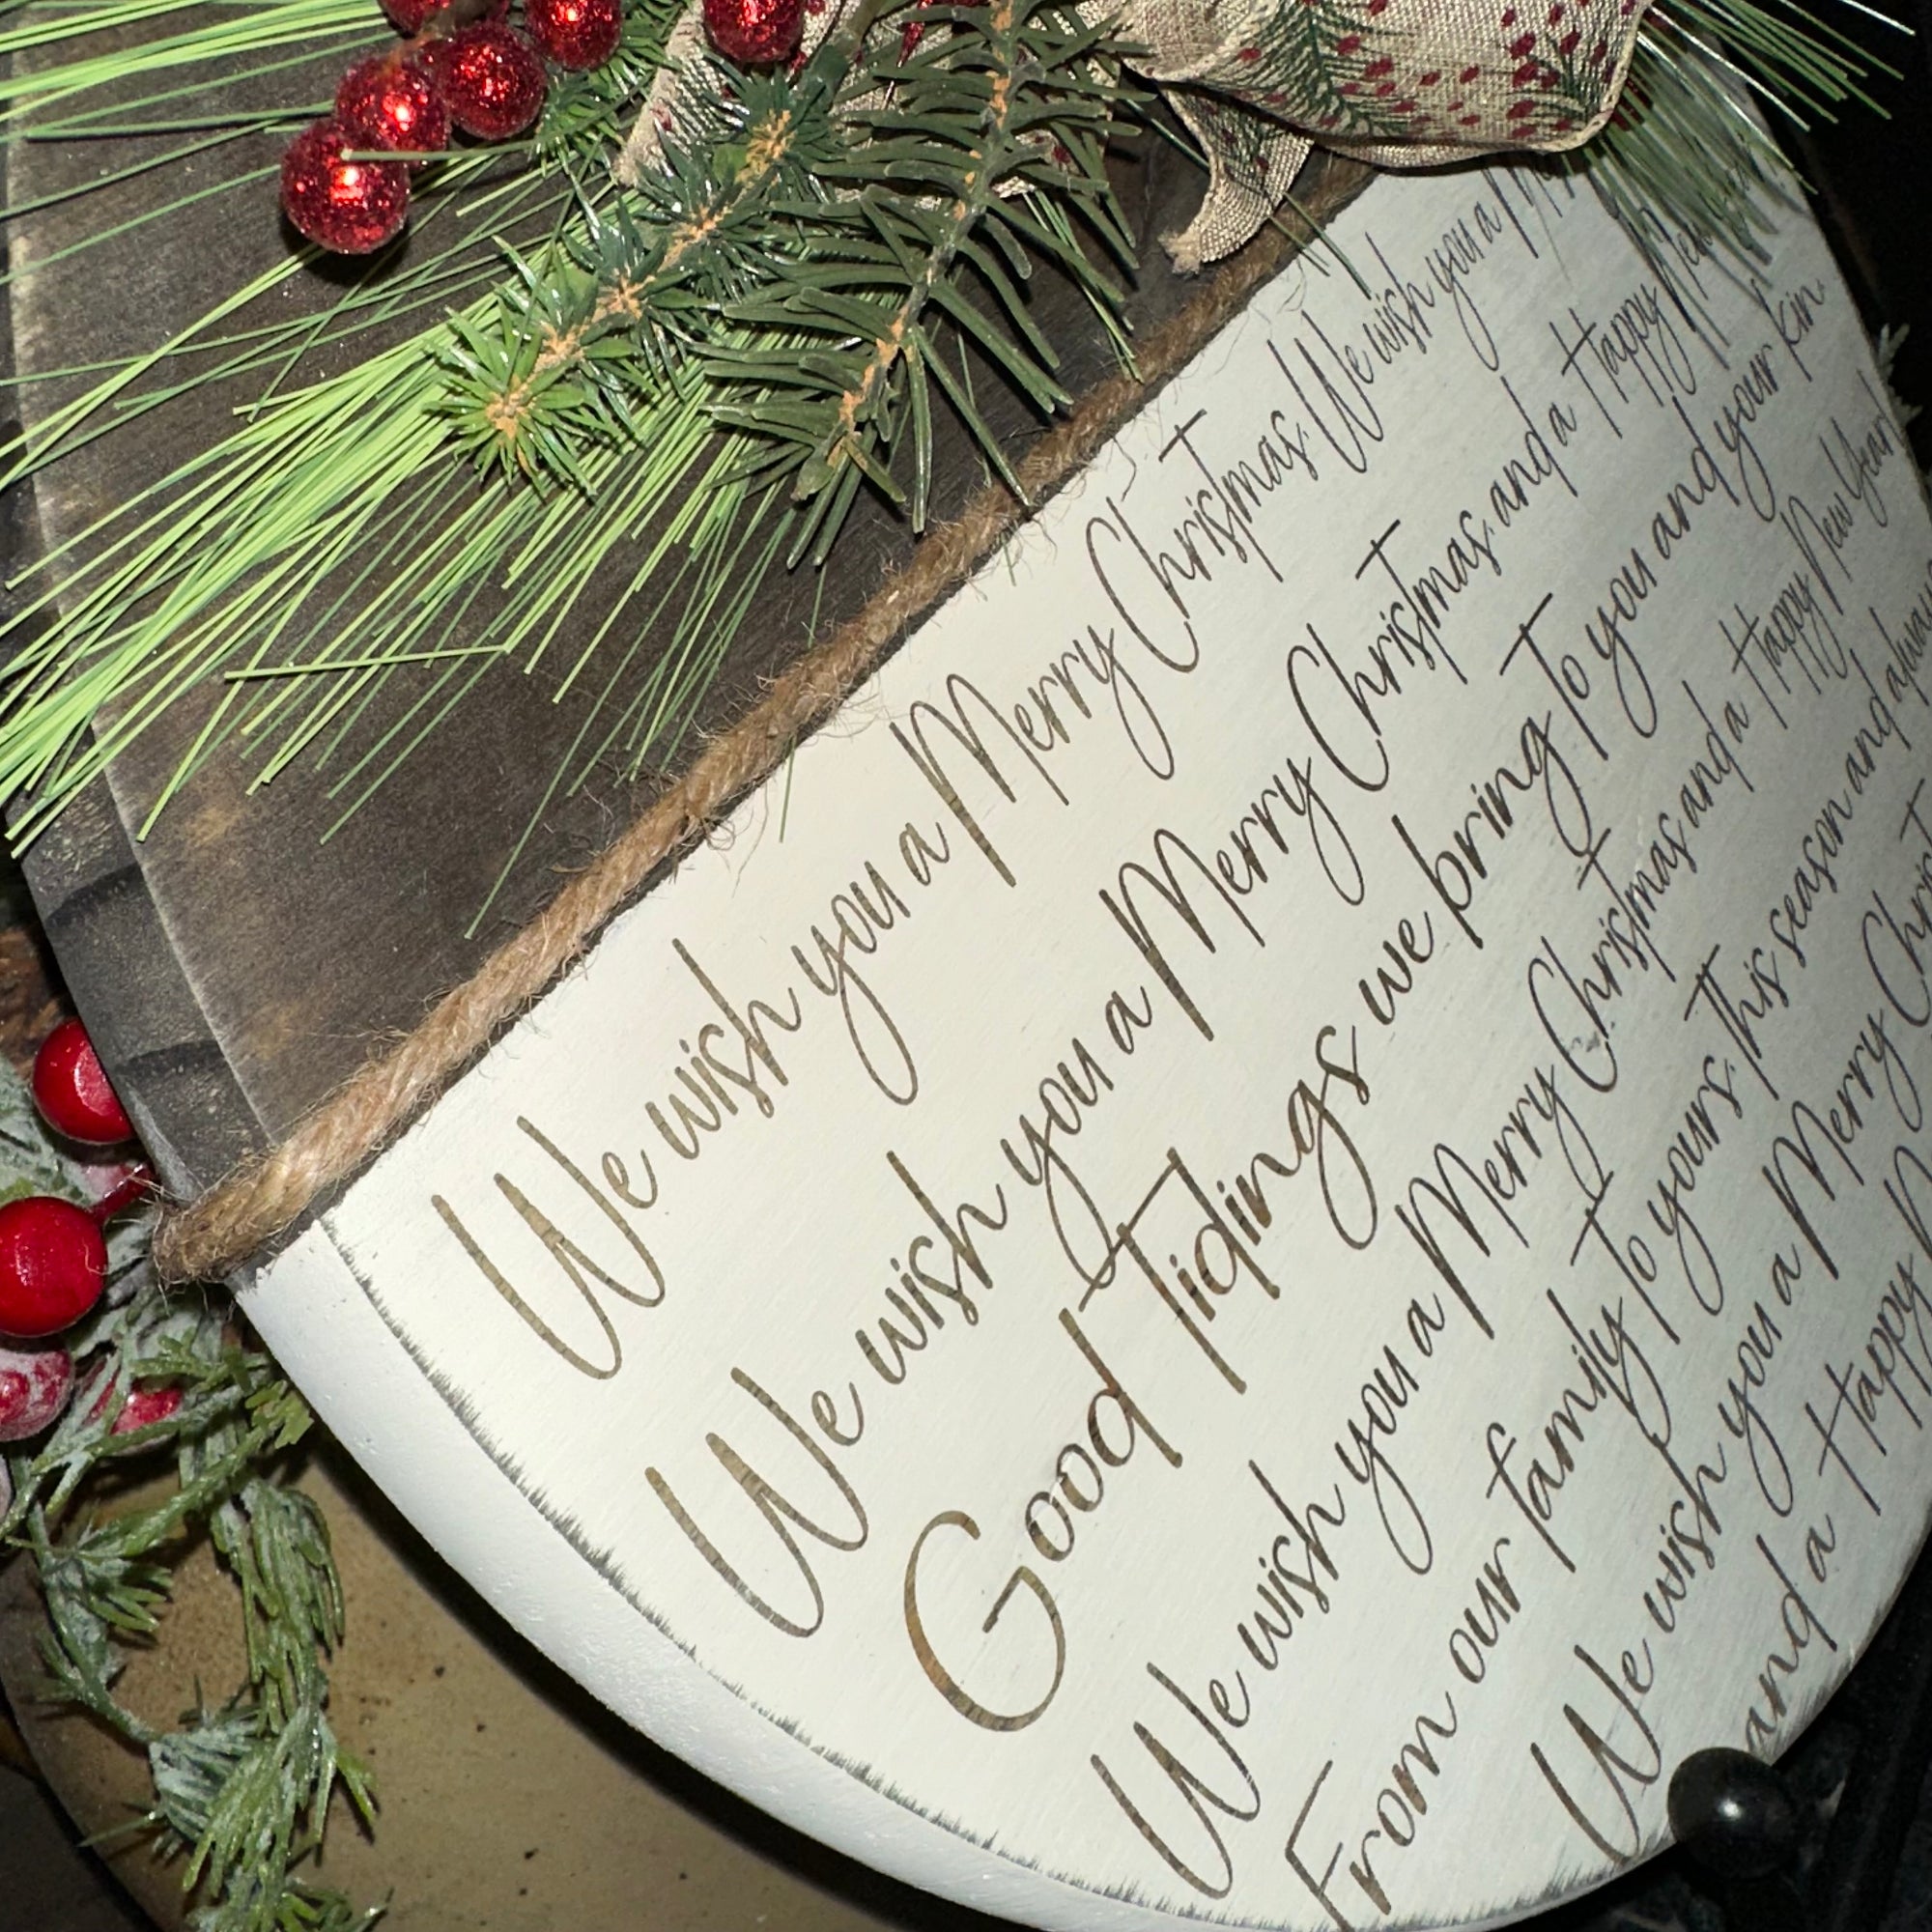 We wish you a Merry Christmas. We wish you a
We wish you a Merry Christmas. and a Happy
Good Tidings we bring To you and your kin.
We wish you a Merry Christmas and a Happy New Year!
From our family To yours. This season and
We wish you a Merry
and a Happy